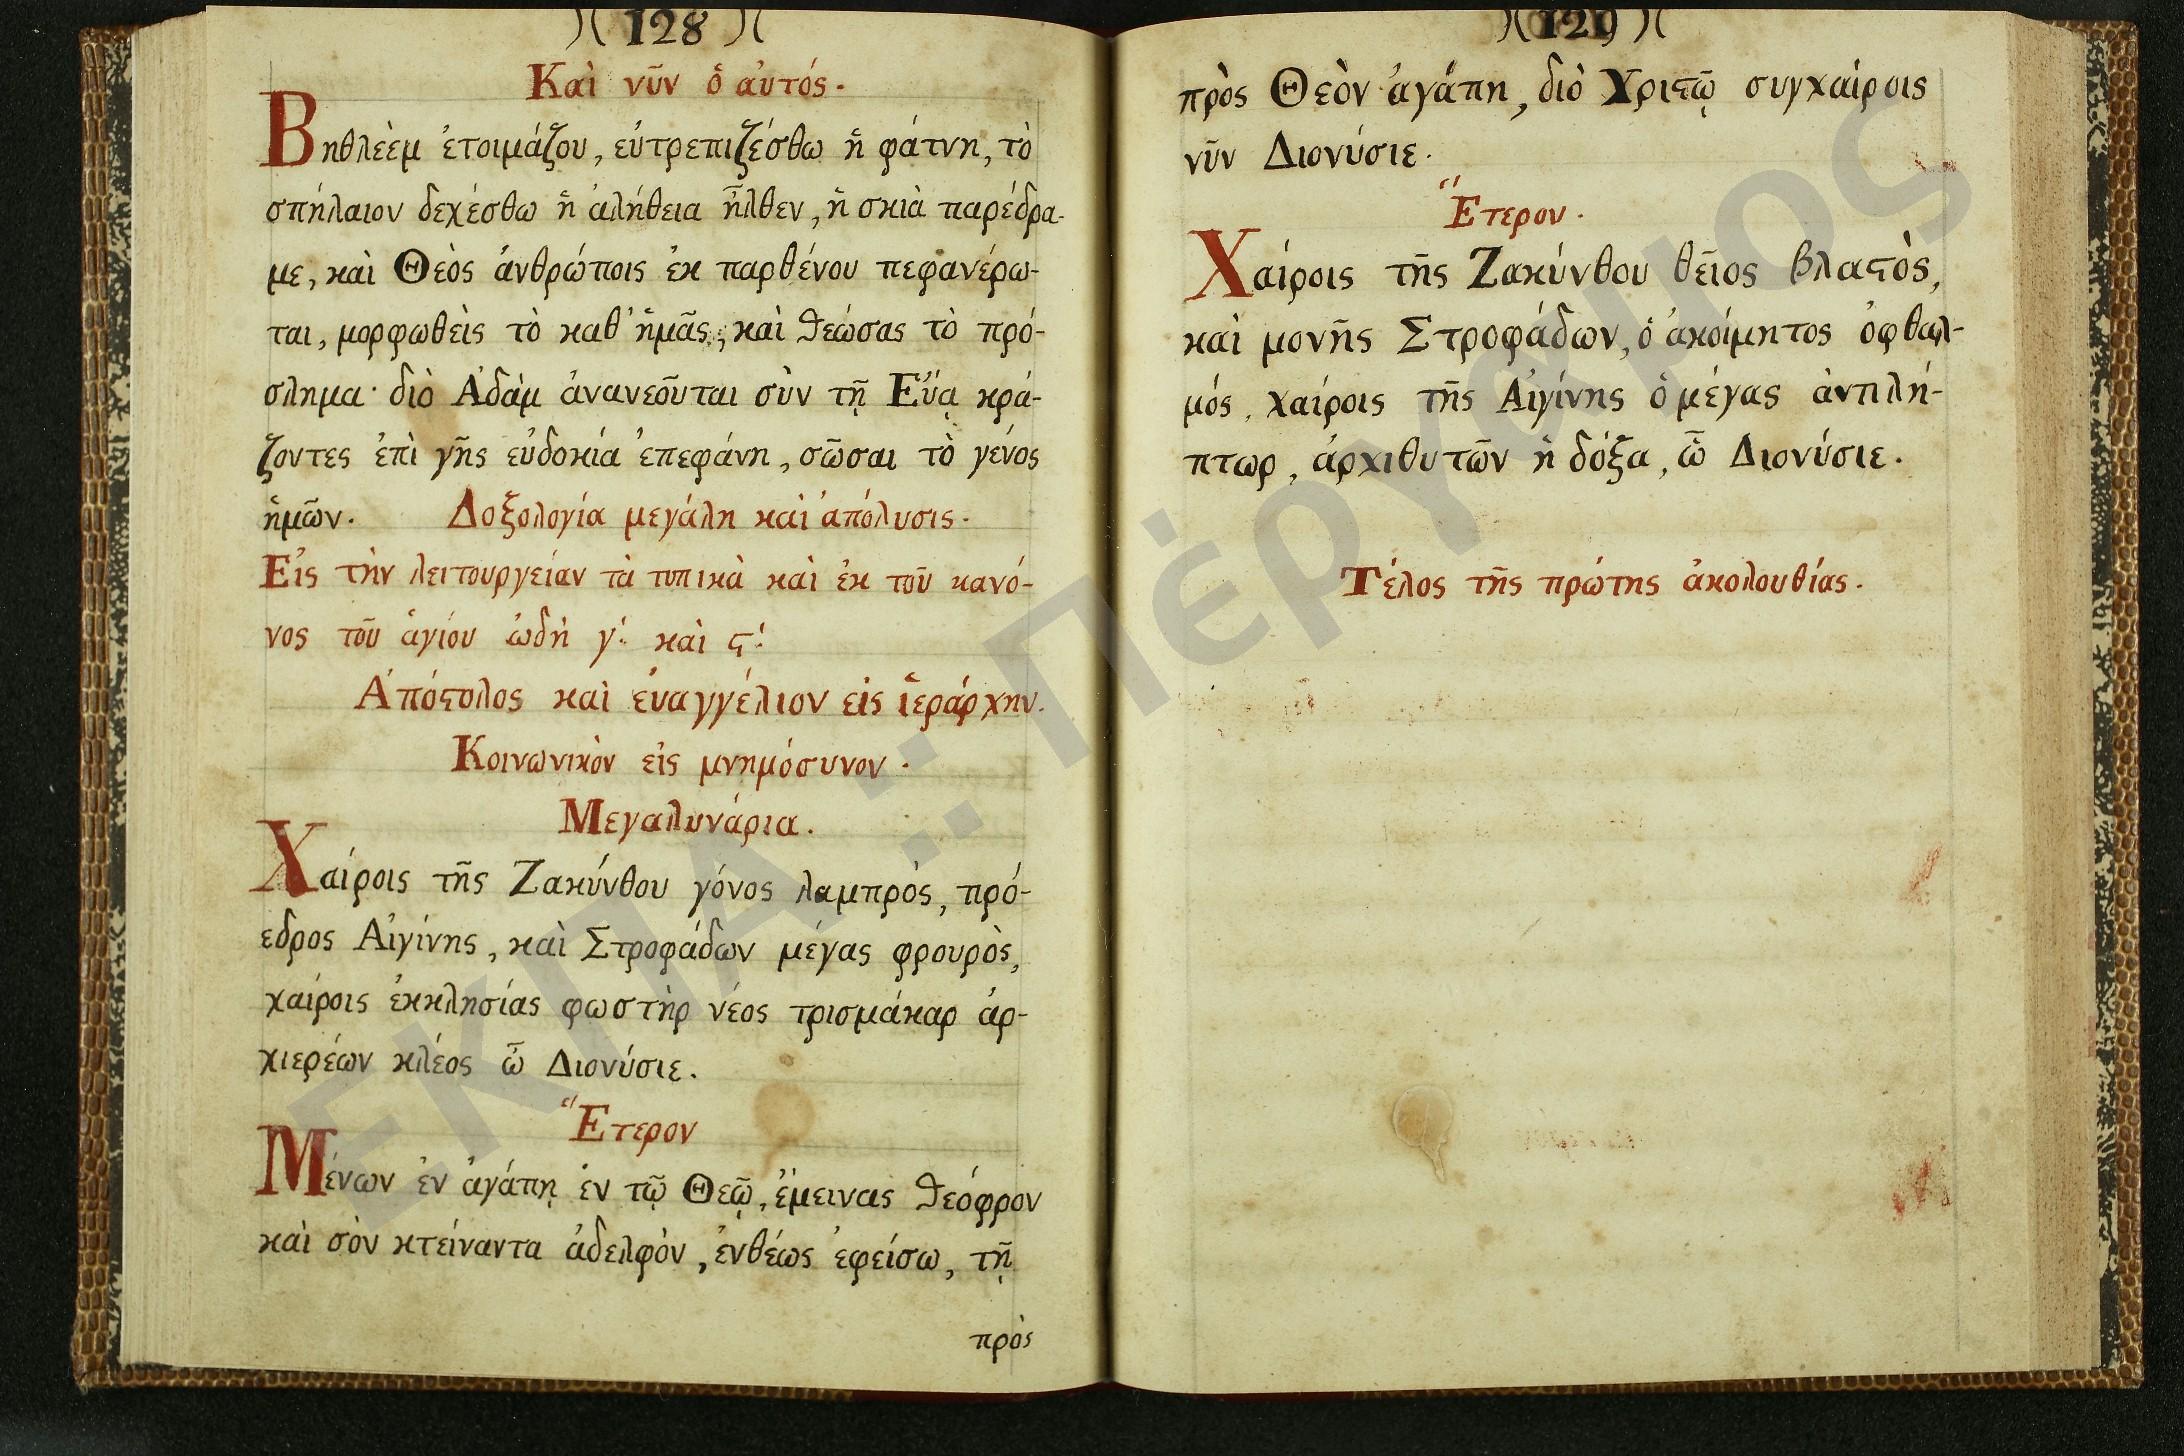 )( 128 )(
Καὶ νῦν ὁ αὐτός.
Βηθλεὲμ ἑτοιμάζου, εὐτρεπιζέσθω ἡ φάτνη, τὸ
σπήλαιον δεχέσθω ἡ ἀλήθεια ἦλθεν, ἡ σκιὰ παρέδρα-
με, καὶ Θεὸς ἀνθρώποις ἐκ παρθένου πεφανέρω-
ται, μορφωθεὶς τὸ καθ' ἡμᾶς, καὶ θεώσας τὸ πρό-
σλημα· διὸ Ἀδὰμ ἀνανεοῦται σὺν τῇ Εὔᾳ κρά-
ζοντες ἐπὶ γῆς εὐδοκία ἐπεφάνη, σῶσαι τὸ γένος
ἡμῶν. Δοξολογία μεγάλη καὶ ἀπόλυσις.
Εἰς τὴν λειτουργείαν τὰ τυπικὰ καὶ ἐκ τοῦ κανό-
νος τοῦ ἁγίου ὠδὴ γ΄: καὶ ϛ΄:
Ἀπόϛολος καὶ ἐυαγγέλιον εἰς ἱεράρχην.
Κοινωνικὸν εἰς μνημόσυνον.
Μεγαλυνάρια.
Χαίροις τῆς Ζακύνθου γόνος λαμπρὸς, πρό-
εδρος Αἰγίνης, καὶ Στροφάδων μέγας φρουρὸς,
χαίροις ἐκκλησίας φωστὴρ νέος τρισμάκαρ ἀρ-
χιερέων κλέος ὦ Διονύσιε.
Ἕτερον
Μένων ἐν ἀγάπῃ ἐν τῷ Θεῷ, ἐμεινας θεόφρον
καὶ σὸν κτείναντα ἀδελφὸν, ἐνθέως ἐφείσω, τῇ
πρὸς
)( 129 )(
πρὸς Θεὸν ἀγάπη, διὸ Χριϛῷ συγχαίροις
νῦν Διονύσιε.
Ἕτερον.
Χαίροις τῆς Ζακύνθου θεῖος βλαϛὸς,
καὶ μονῆς Στροφάδων, ὁ ἀκοίμητος ὀφθαλ-
μός, χαίροις τῆς Αἰγίνης ὁ μέγας ἀντιλή-
πτωρ, ἀρχιθυτῶν ἡ δόξα, ὦ Διονύσιε.
Τέλος τῆς πρώτης ἀκολουθίας.
ΕΚΠΑ :: Πέργαμος